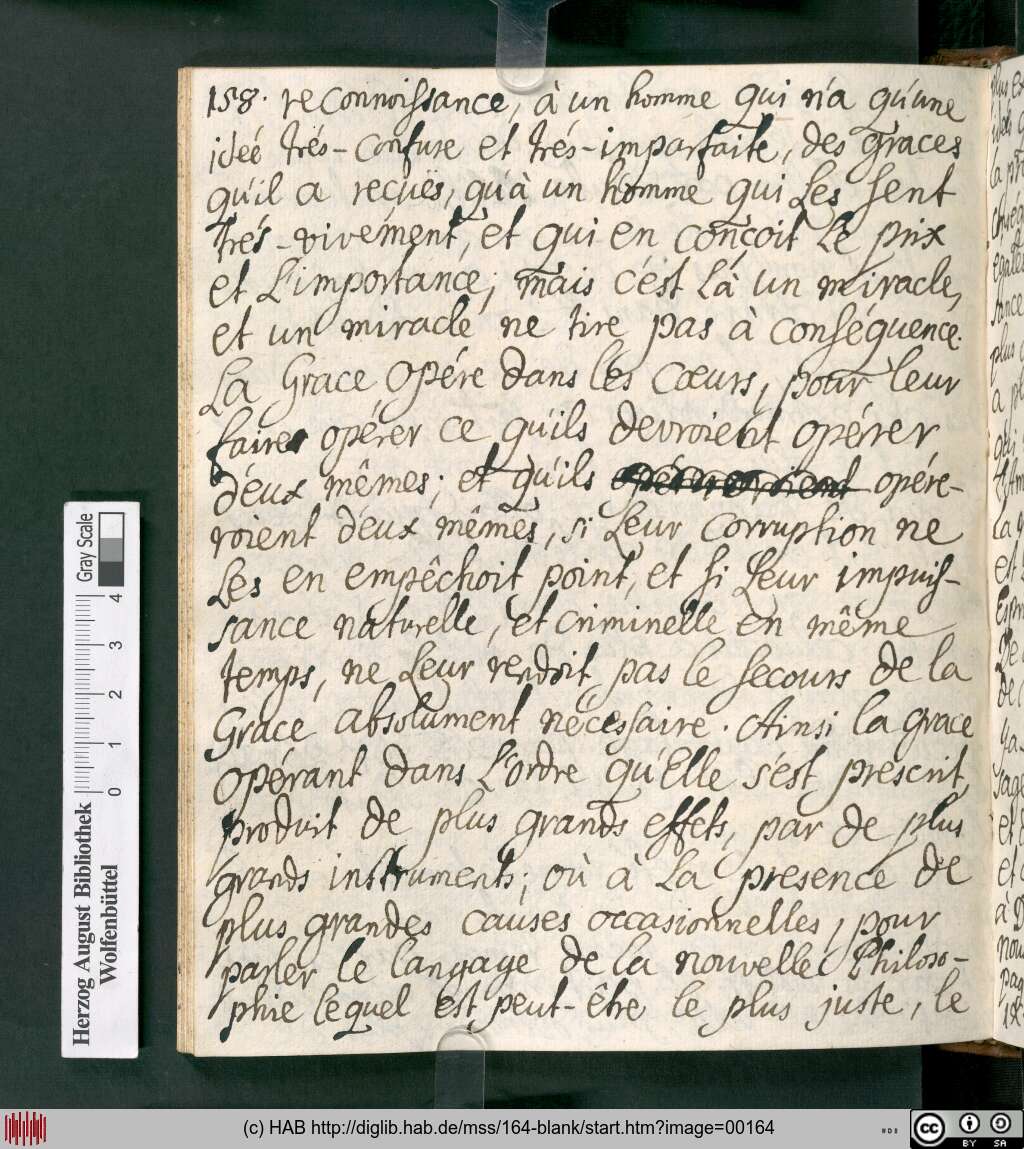 158. reconnoissance, à un homme qui n'a qu'une
idéé trés-confuse et trés-imparfaite, des graces
qu'il a reçuës, qu'à un homme qui les sent
trés-vivément, et qui en conçoit le prix
et l'importance; mais c'est là un miracle,
et un miracle ne tire pas à conséquence.
La Grace opére dans les cœurs, pour leur
faire opérer ce qu'ils devroient opérer
d'eux mêmes; et qu'ils opére-
roient d'eux mêmes, si leur corruption ne
les en empêchoit point, et si leur impuis-
sance naturelle, et criminelle en même
temps, ne leur rendoit pas le secours de la
Grace absolument nécessaire. Ainsi la grace
opérant dans l'ordre qu'Elle s'est prescrit,
produit de plus grands effets, par de plus
grands instruments; où à la presence de
plus grandes causes occasionnelles, pour
parler le langage de la nouvelle Philoso-
phie lequel est peut-être le plus juste, le
Gray Scale
0 1 2 3 4
Herzog August Bibliothek
Wolfenbüttel
(c) HAB http://diglib.hab.de/mss/164-blank/start.htm?image=00164
cc BY SA